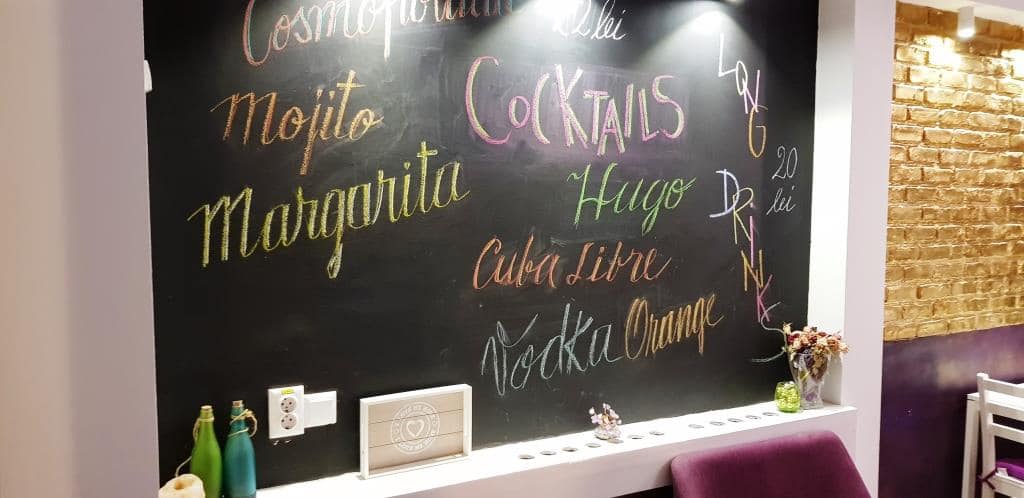 Cosmopolitan 22 lei
Mojito
Margarita
COCKTAILS
Hugo
Cuba Libre
Vodka Orange
LONG DRINK
20 lei